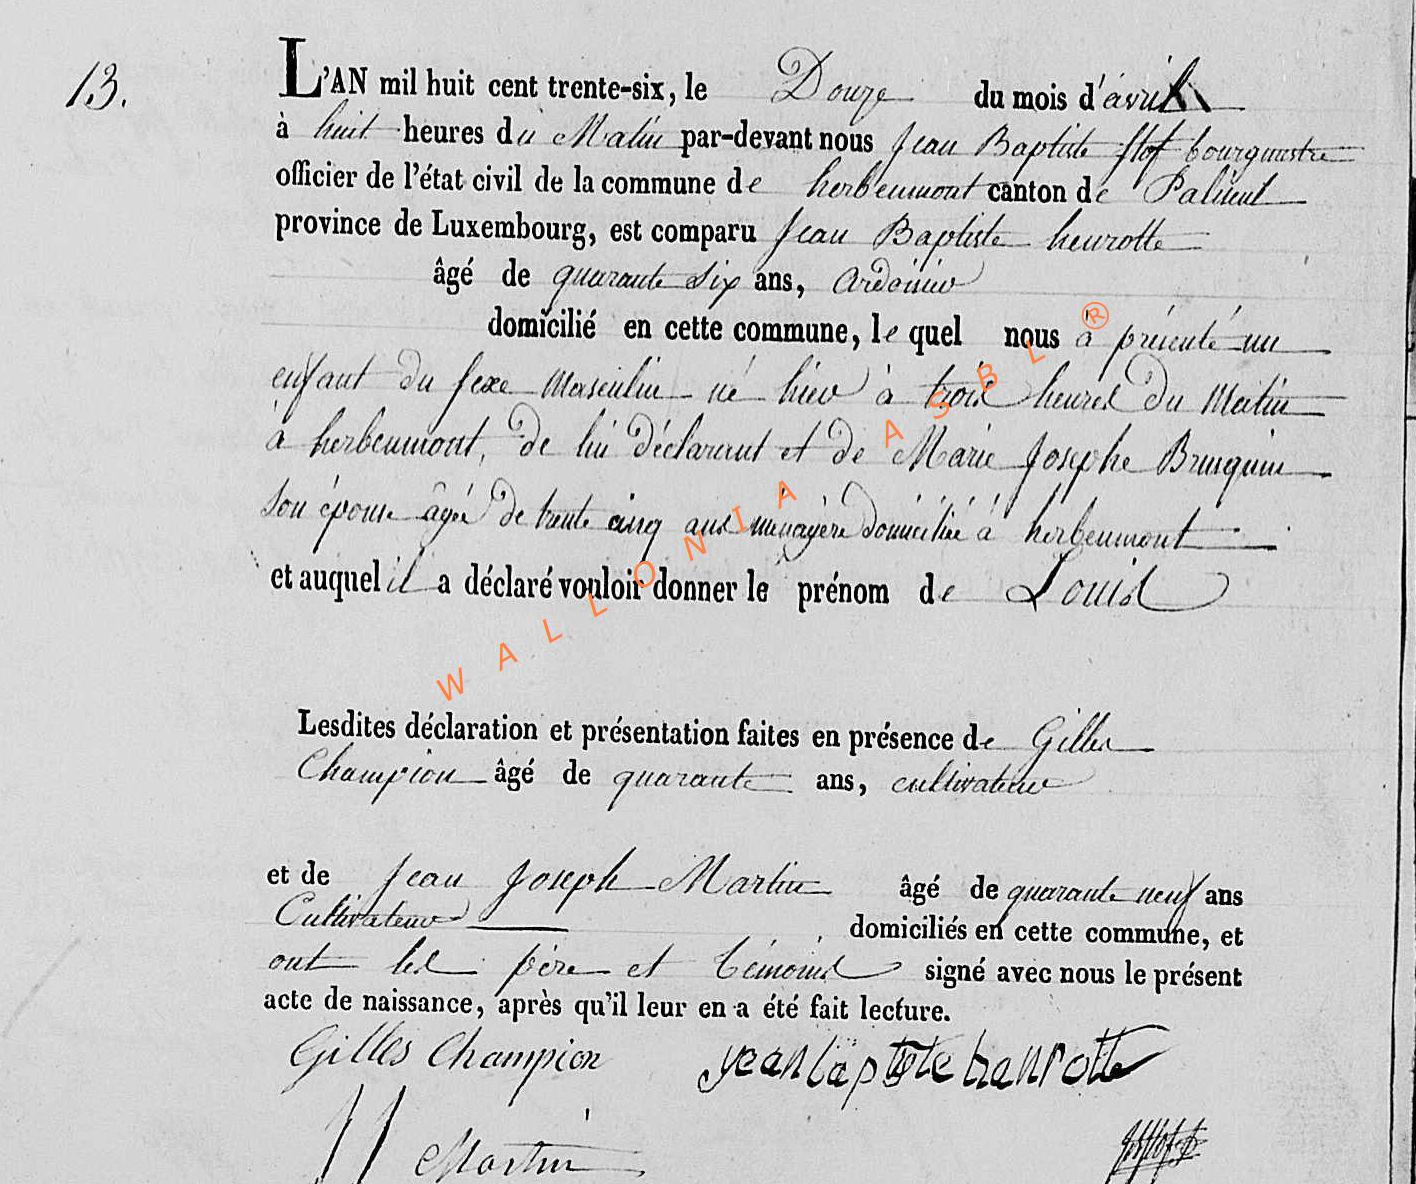 13.
L'AN mil huit cent trente-six, le Douze du mois d'avril
à huit heures du Matin par-devant nous Jean Baptiste flof bourgmestre
officier de l'état civil de la commune de herbeumont canton de Paliseul
province de Luxembourg, est comparu Jean Baptiste henrotte
âgé de quarante six ans, ardoisier
domicilié en cette commune, le quel nous à présenté un
enfant du sexe Masculin né hier à trois heures du Matin
à herbeumont, de lui déclarant et de Marie Josephe Brinquin
son épouse âgée de trente cinq ans ménagère domiciliée à herbeumont
et auquel il a déclaré vouloir donner le prénom de Louis
Lesdites déclaration et présentation faites en présence de Gilles
Champion âgé de quarante ans, cultivateur
et de Jean Joseph Martin âgé de quarante neuf ans
Cultivateur domiciliés en cette commune, et
ont les père et témoins signé avec nous le présent
acte de naissance, après qu'il leur en a été fait lecture.
Gilles Champion Jean baptiste henrotte
JJ Martin
WALLONIA ASBL ®